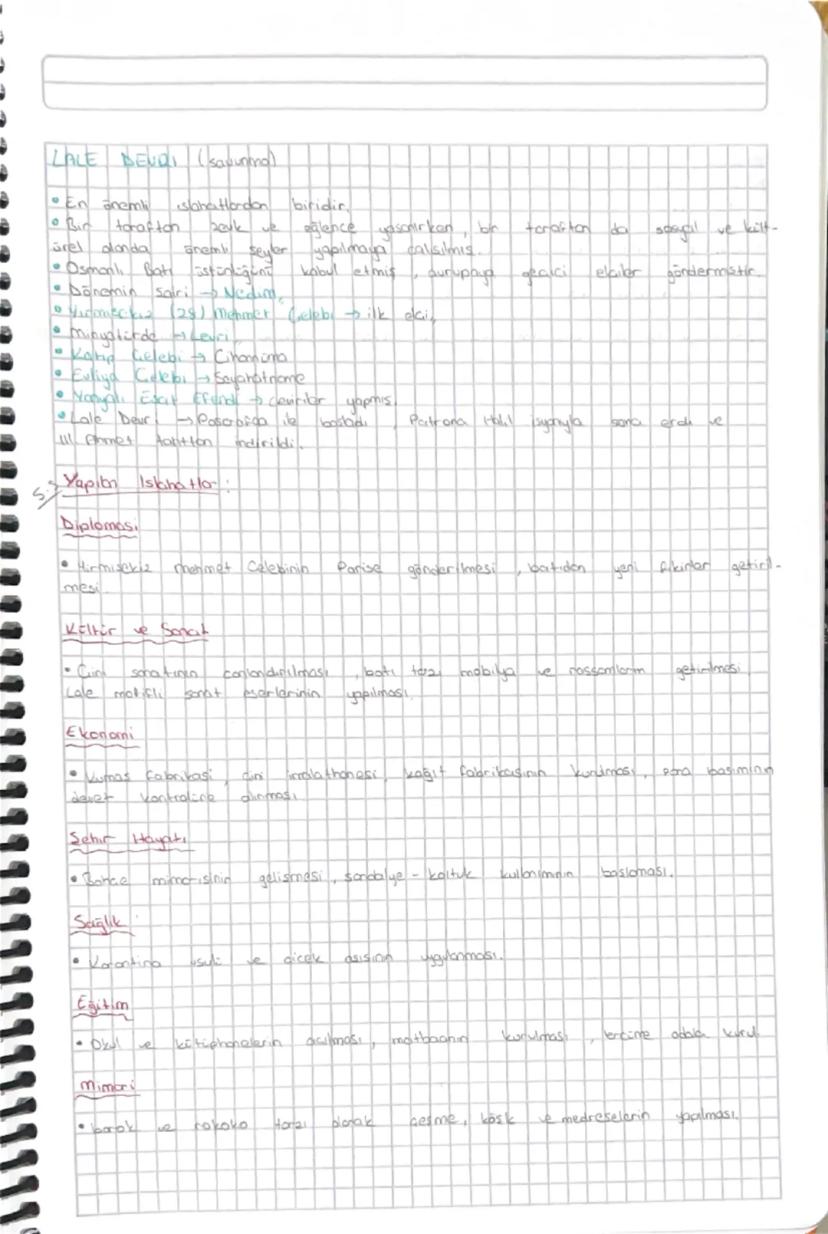 LALE DEVRİ (savunma)
• En önemli ıslahatlardan biridir.
• Bir taraftan zevk ve eğlence yaşanırken, bir taraftan da sosyal ve kült-
ürel alanda önemli şeyler yapılmaya çalışılmış.
• Osmanlı Batı üstünlüğünü kabul etmiş, avrupaya geçici elçiler göndermiştir.
• Dönemin şairi → Nedim.
• Yirmisekiz (28) Mehmet Çelebi → ilk elçi.
• Minyatürde → Levni
• Katip Çelebi → Cihannüma
• Evliya Çelebi → Seyahatname
• Yanyalı Esat Efendi → çeviriler yapmış.
• Lale Devri → Pasarofça ile başladı, Patrona Halil isyanıyla sona erdi ve
III. Ahmet tahttan indirildi.
Yapılan Islahatlar:
Diplomasi
• Yirmisekiz Mehmet Çelebinin Parise gönderilmesi, batıdan yeni fikirler getiril-
mesi.
Kültür ve Sanat
• Çini sanatının canlandırılması, batı tarzı mobilya ve ressamların getirilmesi
Lale motifli sanat eserlerinin yapılması.
Ekonomi
• Kumaş fabrikası, çini imalathanesi, kağıt fabrikasının kurulması, para basımının
devlet kontrolüne alınması.
Şehir Hayatı
• Bahçe mimarisinin gelişmesi, sandalye - koltuk kullanımının başlaması.
Sağlık
• Karantina usulü ve çiçek aşısının uygulanması.
Eğitim
• Okul ve kütüphanelerin açılması, matbaanın kurulması, tercüme odala kurul
Mimari
• barok ve rokoko tarzı olarak çeşme, köşk ve medreselerin yapılması.